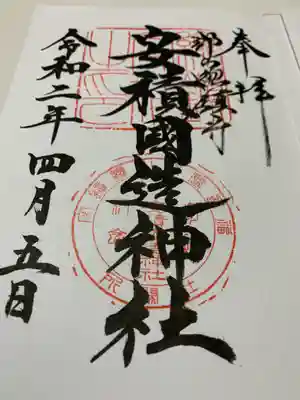 奉拝
郡山総鎮守
安積國造神社
令和二年四月五日